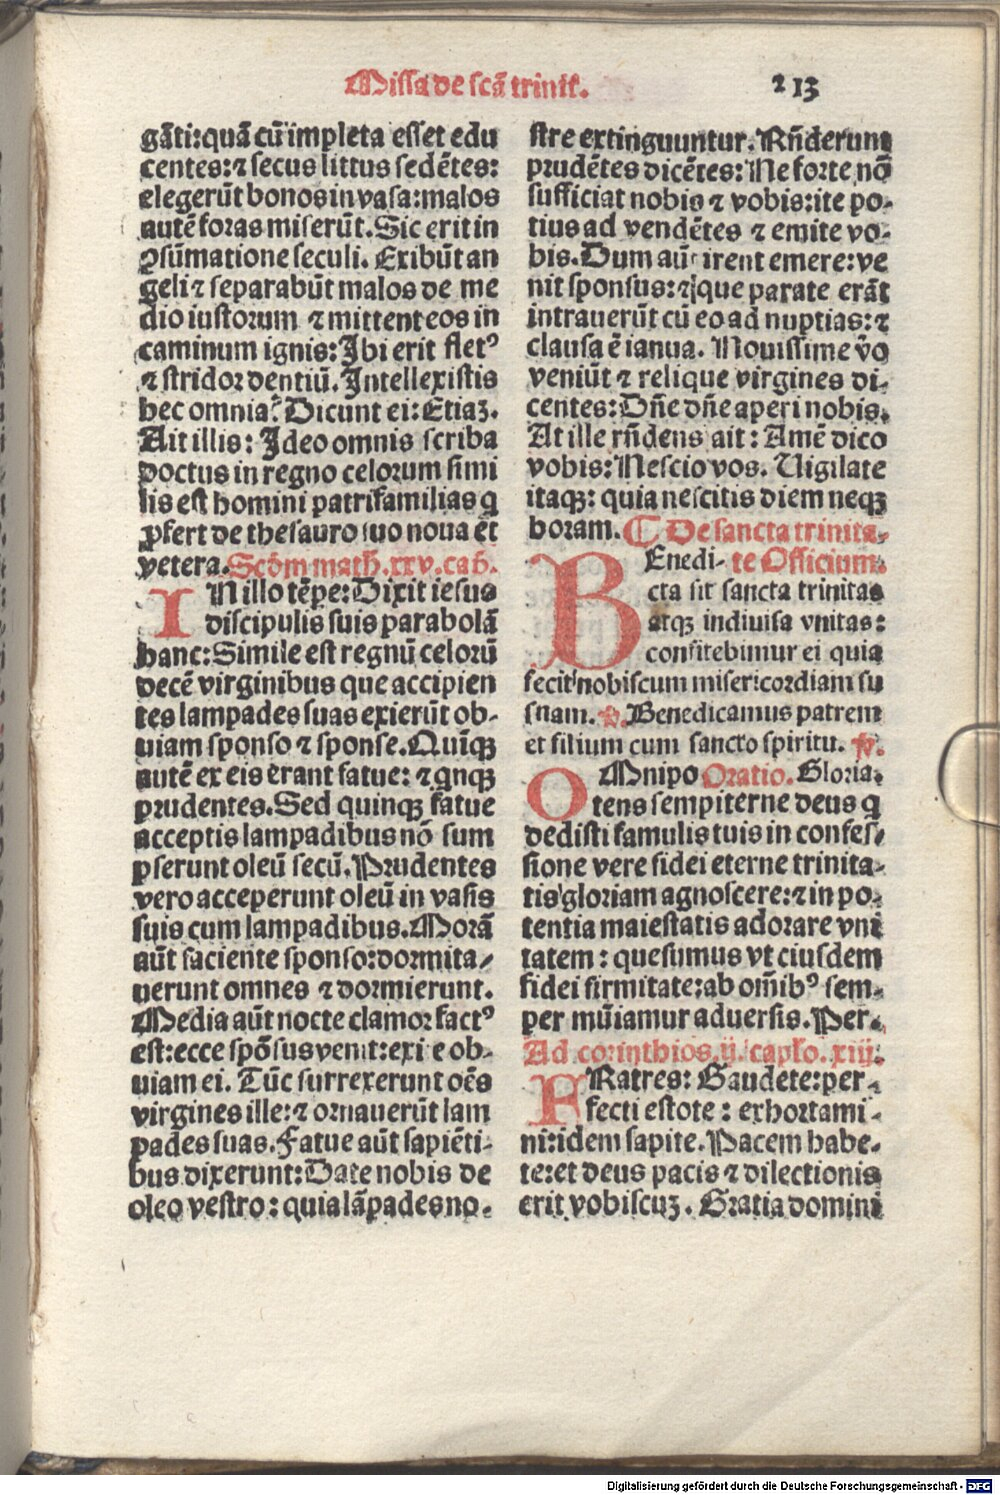 Missa de scā trinit̄.
213
gāti: quā cū impleta esset edu
centes: ⁊ secus littus sedētes:
elegerūt bonos in vasa: malos
autē foras miserūt. Sic erit in
ꝯsūmatione seculi. Exibūt an
geli ⁊ separabūt malos de me
dio iustorum ⁊ mittent eos in
caminum ignis: Ibi erit fletꝰ
⁊ stridor dentiū. Intellexistis
hec omnia? Dicunt ei: Etiaꝫ.
Ait illis: Ideo omnis scriba
doctus in regno celorum simi
lis est homini patrifamilias q
ꝓfert de thesauro suo noua et
vetera. Scdm math. xxv. cap.
IN illo tēpe: Dixit iesus
discipulis suis parabolā
hanc: Simile est regnū celorū
decē virginibus que accipien
tes lampades suas exierūt ob-
uiam sponso ⁊ sponse. Quīqꝫ
autē ex eis erant fatue: ⁊ qnqꝫ
prudentes. Sed quinqꝫ fatue
acceptis lampadibus nō sum
pserunt oleū secū. Prudentes
vero acceperunt oleū in vasis
suis cum lampadibus. Morā
aūt faciente sponso: dormita-
uerunt omnes ⁊ dormierunt.
Media aūt nocte clamor factꝰ
est: ecce spōsus venit: exite ob-
uiam ei. Tūc surrexerunt oēs
virgines ille: ⁊ ornauerūt lam
pades suas. Fatue aūt sapiēti-
bus dixerunt: Date nobis de
oleo vestro: quia lāpades no-
stre extinguuntur. Rn̄derunt
prudētes dicētes: Ne forte nō
sufficiat nobis ⁊ vobis: ite po-
tius ad vendētes ⁊ emite vo-
bis. Dum aūt irent emere: ve
nit sponsus: ⁊ que parate erāt
intrauerūt cū eo ad nuptias: ⁊
clausa ē ianua. Nouissime v̄o
veniūt ⁊ relique virgines di-
centes: Dn̄e dn̄e aperi nobis.
At ille rn̄dens ait: Amē dico
vobis: Nescio vos. Vigilate
itaqꝫ: quia nescitis diem neqꝫ
horam. ¶ De sancta trinita-
BEnedi- te Officium.
cta sit sancta trinitas
atqꝫ indiuisa vnitas:
confitebimur ei quia
fecit nobiscum misericordiam su
snam. ℣. Benedicamus patrem
et filium cum sancto spiritu. ℣.
OMnipo Oratio. Gloria.
tens sempiterne deus q
dedisti famulis tuis in confes-
sione vere fidei eterne trinita-
tis gloriam agnoscere: ⁊ in po-
tentia maiestatis adorare vni
tatem: quesumus vt eiusdem
fidei firmitate: ab om̄ibꝰ sem-
per mūiamur aduersis. Per.
Ad corinthios. ij. capło. xiij.
FRatres: Gaudete: per-
fecti estote: exhortami-
ni: idem sapite. Pacem habe-
te: et deus pacis ⁊ dilectionis
erit vobiscuꝫ. Gratia domini
Digitalisierung gefördert durch die Deutsche Forschungsgemeinschaft - DFG